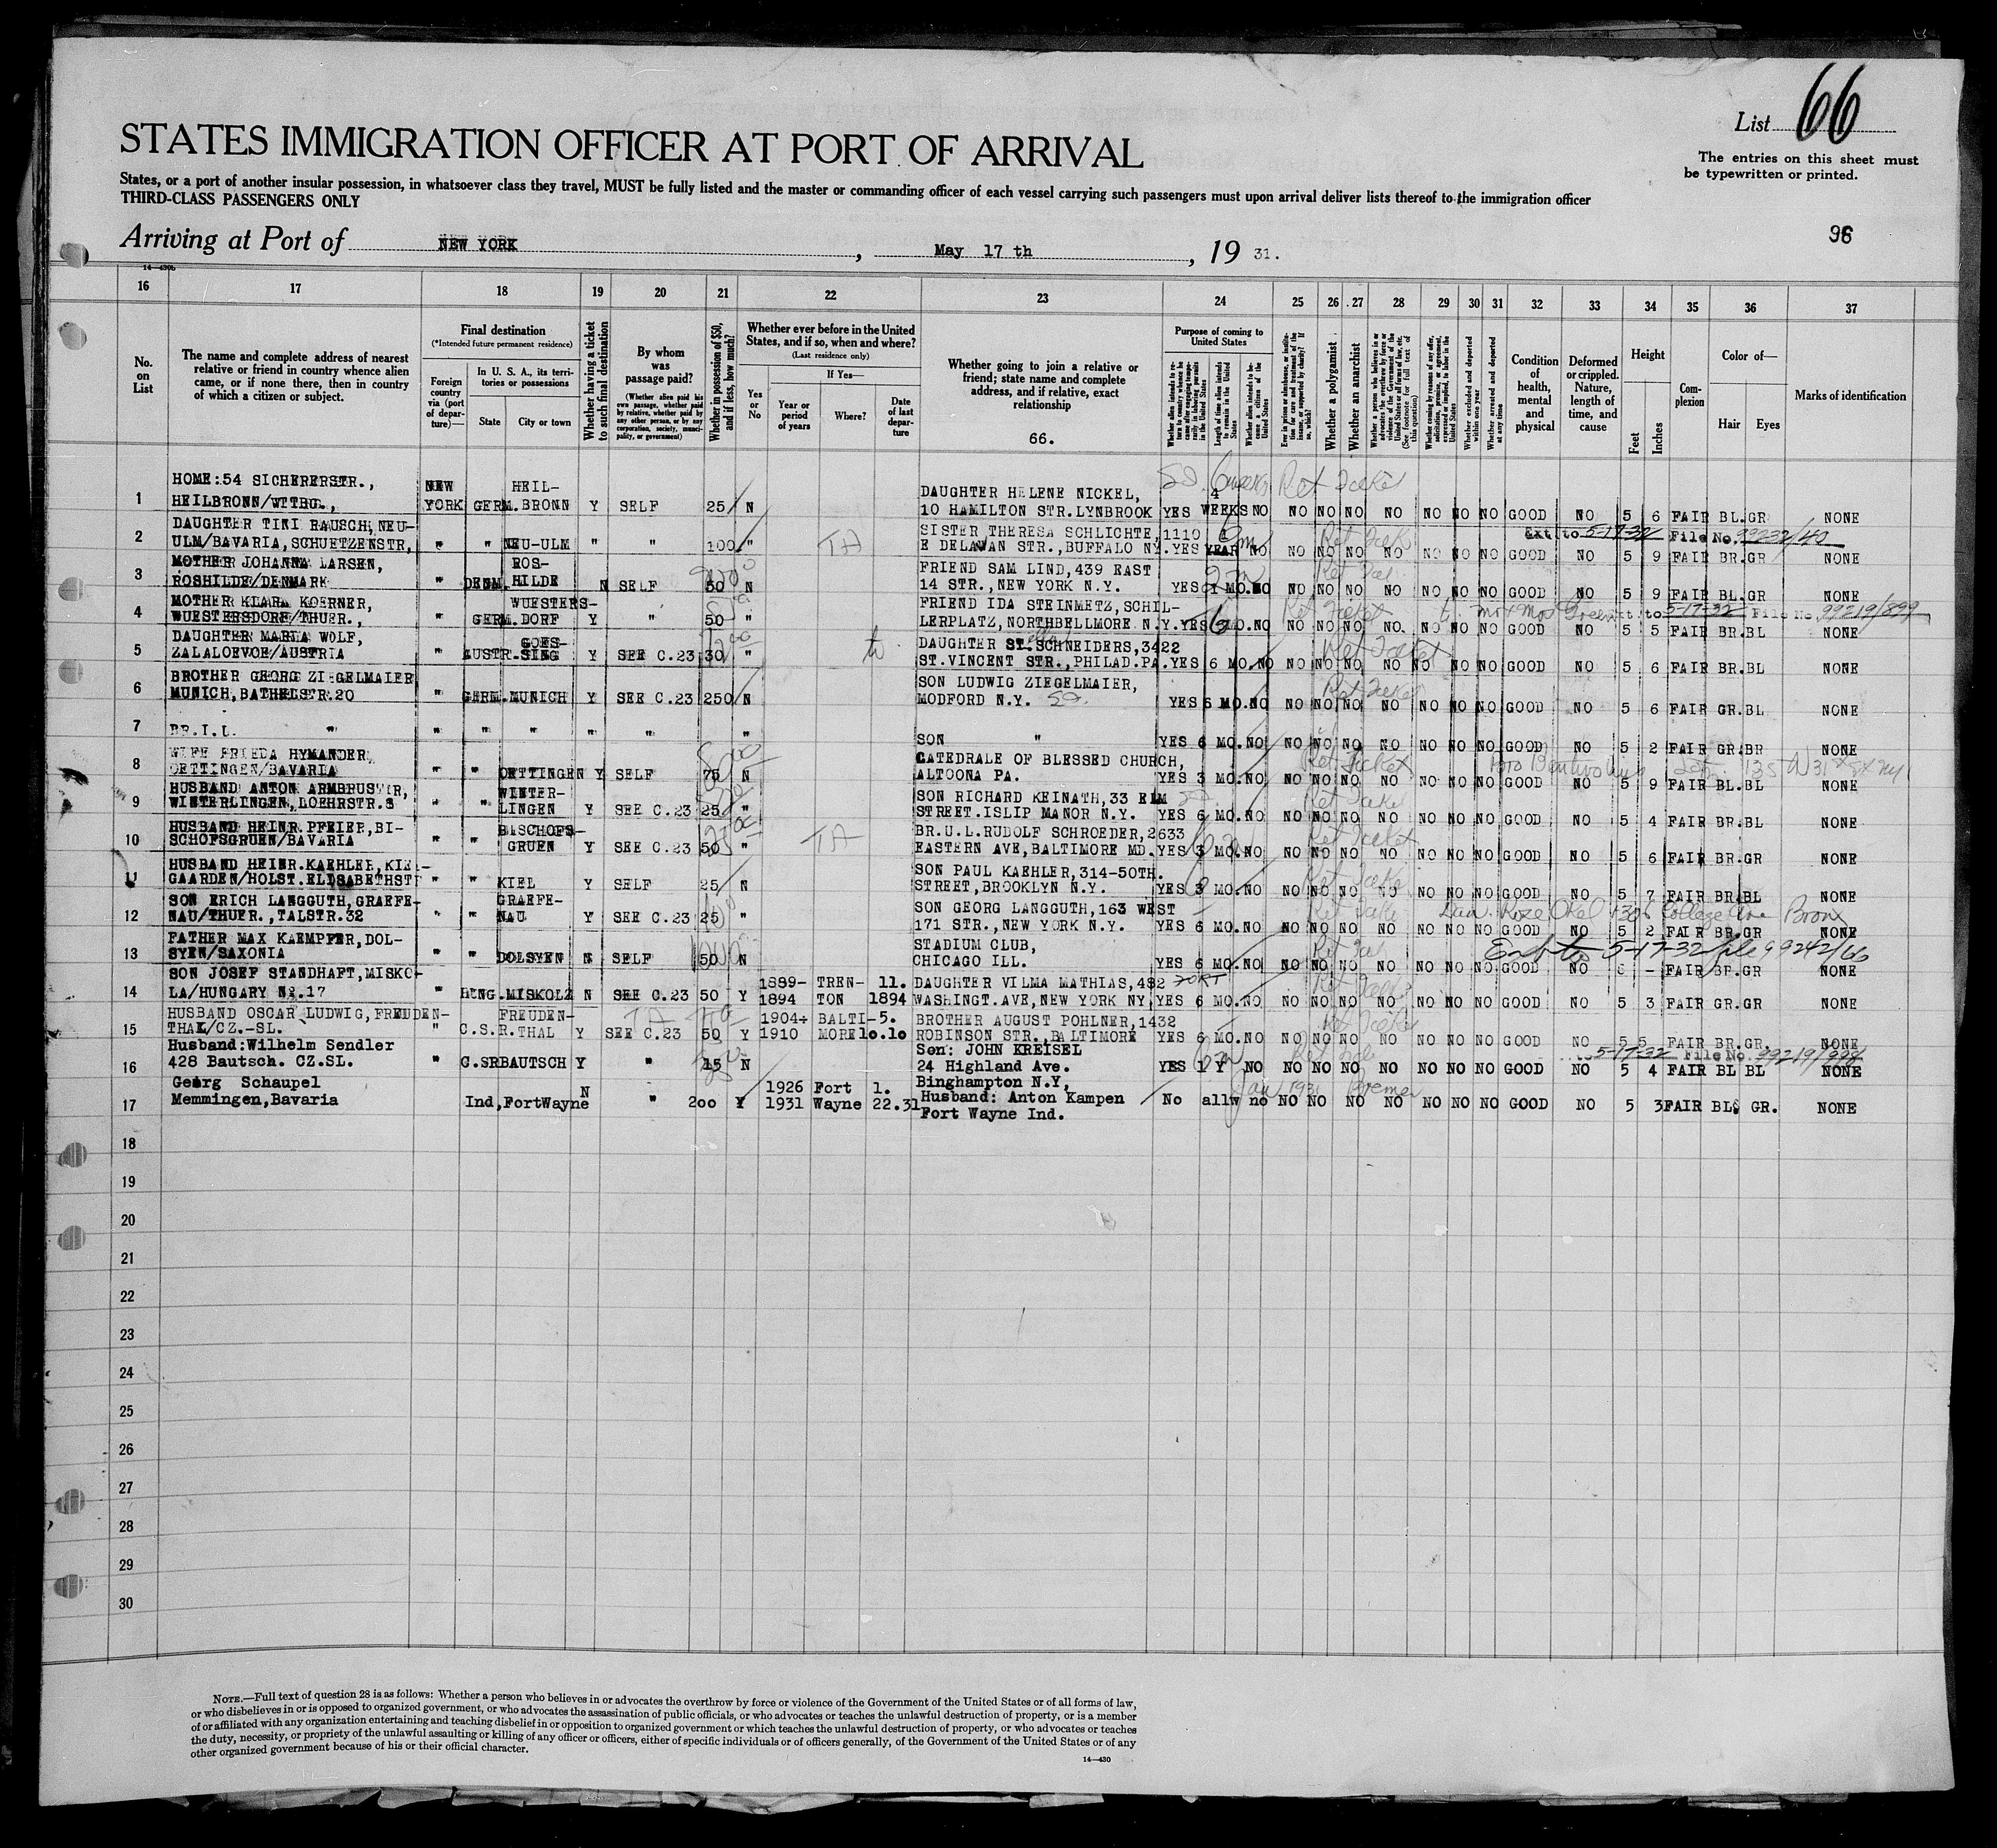 List 66
STATES IMMIGRATION OFFICER AT PORT OF ARRIVAL
The entries on this sheet must
be typewritten or printed.
States, or a port of another insular possession, in whatsoever class they travel, MUST be fully listed and the master or commanding officer of each vessel carrying such passengers must upon arrival deliver lists thereof to the immigration officer
THIRD-CLASS PASSENGERS ONLY
Arriving at Port of NEW YORK, May 17 th, 19 31.
96
14-430b
16 17 18 19 20 21 22 23 24 25 26 27 28 29 30 31 32 33 34 35 36 37
No. on List
The name and complete address of nearest
relative or friend in country whence alien
came, or if none there, then in country
of which a citizen or subject.
Final destination
(*Intended future permanent residence)
Foreign country via (port of departure)—
In U. S. A., its territories or possessions
State
City or town
Whether having a ticket to such final destination
By whom was passage paid?
(Whether alien paid his own passage, whether paid by relative, whether paid by any other person, or by any corporation, society, municipality, or government)
Whether in possession of $50, and if less, how much?
Whether ever before in the United States, and if so, when and where?
(Last residence only)
Yes or No
If Yes—
Year or period of years
Where?
Date of last departure
Whether going to join a relative or
friend; state name and complete
address, and if relative, exact
relationship
66.
Purpose of coming to United States
Length of time alien intends to remain in the United States
Whether alien intends to become a citizen of the United States
Whether a polygamist
Whether an anarchist
(See footnote for full text of this question)
Whether excluded and deported within one year
Whether arrested and deported at any time
Condition of health, mental and physical
Deformed or crippled. Nature, length of time, and cause
Height
Feet
Inches
Complexion
Color of—
Hair
Eyes
Marks of identification
HOME:54 SICHERERSTR., NEW HEIL- DAUGHTER HELENE NICKEL, 4 Ret Ticket
1 HEILBRONN/WTTBG., YORK GERM. BRONN Y SELF 25 N 10 HAMILTON STR.LYNBROOK YES WEEKS NO NO NO NO NO NO NO NO GOOD NO 5 6 FAIR BL.GR NONE
DAUGHTER TINI RAUSCH, NEU- SISTER THERESA SCHLICHTE, 1110 Ext to 5-17-32 File No. 99232/40
2 ULM/BAVARIA, SCHUETZENSTR, " " NEU-ULM " " 100 " TA E DELAWAN STR., BUFFALO NY. YES YEAR NO NO NO NO NO NO NO NO GOOD NO 5 9 FAIR BR.GR NONE
MOTHER JOHANNA LARSEN, ROS- FRIEND SAM LIND, 439 EAST
3 ROSHILDE/DENMARK " DENM. HILDE N SELF 50 N 14 STR., NEW YORK N.Y. YES MO. NO NO NO NO NO NO NO NO GOOD NO 5 9 FAIR BL.GR NONE
MOTHER KLARA KOERNER, WUESTERS- FRIEND IDA STEINMETZ, SCHIL- Ret Ticket to 5-17-32 File No. 99219/899
4 WUESTERSDORF/THUER., " GERM. DORF Y " 50 " LERPLATZ, NORTHBELLMORE N.Y. YES 6 MO. NO NO NO NO NO NO NO NO GOOD NO 5 5 FAIR BR.BL NONE
DAUGHTER MARIA WOLF, GOES- DAUGHTER ST. SCHNEIDERS, 3422 Ret Ticket
5 ZALALOEVOE/AUSTRIA " AUSTR. SING Y SEE C.23 30 " ST.VINCENT STR., PHILAD.PA. YES 6 MO. NO NO NO NO NO NO NO NO GOOD NO 5 6 FAIR BR.BL NONE
BROTHER GEORG ZIEGELMAIER SON LUDWIG ZIEGELMAIER, Ret Ticket
6 MUNICH, BATHELSTR.20 " GERM. MUNICH Y SEE C.23 250 N MODFORD N.Y. YES 6 MO. NO NO NO NO NO NO NO NO GOOD NO 5 6 FAIR GR.BL NONE
7 BR.I.L. " " " " " " " SON " YES 6 MO. NO NO NO NO NO NO NO NO GOOD NO 5 2 FAIR GR.BR NONE
WIFE FRIEDA HYMANDER, CATEDRALE OF BLESSED CHURCH, Ret Ticket
8 OETTINGEN/BAVARIA " " OETTINGEN Y SELF 75 N ALTOONA PA. YES 3 MO. NO NO NO NO NO NO NO NO GOOD NO 5 9 FAIR BL.BL NONE
HUSBAND ANTON ARMBRUSTER, WINTER- SON RICHARD KEINATH, 33 ELM
9 WINTERLINGEN, LOEHRSTR.8 " " LINGEN Y SEE C.23 25 " STREET.ISLIP MANOR N.Y. YES 6 MO. NO NO NO NO NO NO NO NO GOOD NO 5 4 FAIR BR.BL NONE
HUSBAND HEINR.PFEIER, BI- BISCHOFS- BR.U.L.RUDOLF SCHROEDER, 2633 Ret Ticket
10 SCHOFSGRUEN/BAVARIA " " GRUEN Y SEE C.23 50 " TA EASTERN AVE, BALTIMORE MD. YES 3 MO. NO NO NO NO NO NO NO NO GOOD NO 5 6 FAIR BR.GR NONE
HUSBAND HEINR.KAEHLER, KIEL- SON PAUL KAEHLER, 314-50TH.
11 GAARDEN/HOLST.ELISABETHST " " KIEL Y SELF 25 N STREET, BROOKLYN N.Y. YES 3 MO. NO NO NO NO NO NO NO NO GOOD NO 5 7 FAIR BR.BL NONE
SON ERICH LANGGUTH, GRAEFE- GRAEFE- SON GEORG LANGGUTH, 163 WEST College Ave Bronx
12 NAU/THUER., TALSTR.32 " " NAU Y SEE C.23 25 " 171 STR., NEW YORK N.Y. YES 6 MO. NO NO NO NO NO NO NO NO GOOD NO 5 2 FAIR BR.GR NONE
FATHER MAX KAEMPFER, DOL- STADIUM CLUB, Ext to 5-17-32 file 99242/66
13 SYEN/SAXONIA " " DOLSYEN N SELF 50 N CHICAGO ILL. YES 6 MO. NO NO NO NO NO NO NO NO GOOD NO 6 - FAIR BR.GR NONE
SON JOSEF STANDHAFT, MISKO- 1889- TREN- 11. DAUGHTER VILMA MATHIAS, 482
14 LA/HUNGARY No.17 " HUNG. MISKOLZ N SEE C.23 50 Y 1894 TON 1894 WASHINGT.AVE, NEW YORK NY, YES 6 MO. NO NO NO NO NO NO NO NO GOOD NO 5 3 FAIR GR.GR NONE
HUSBAND OSCAR LUDWIG, FREUDEN- FREUDEN- 1904- BALTI- 5. BROTHER AUGUST POHLNER, 1432 Ret Ticket
15 THAL/CZ.-SL. " C.S.R. THAL Y SEE C.23 50 Y 1910 MORE 10.10 ROBINSON STR., BALTIMORE YES 6 MO. NO NO NO NO NO NO NO NO GOOD NO 5 5 FAIR BR.GR. NONE
Husband: Wilhelm Sendler Son: JOHN KREISEL to 5-17-32 File No. 99219/998
16 428 Bautsch. CZ.SL. " C.SR BAUTSCH Y " 15 N 24 Highland Ave. YES 1 Y NO NO NO NO NO NO NO NO GOOD NO 5 4 FAIR BL BL NONE
Georg Schaupel N 1926 Fort 1. Binghampton N.Y, Jan 1931 Bremen
17 Memmingen, Bavaria Ind, Fort Wayne " 200 Y 1931 Wayne 22.31 Husband: Anton Kampen No allw no NO NO NO NO NO NO NO GOOD NO 5 3 FAIR BL GR. NONE
Fort Wayne Ind.
18
19
20
21
22
23
24
25
26
27
28
29
30
NOTE.—Full text of question 28 is as follows: Whether a person who believes in or advocates the overthrow by force or violence of the Government of the United States or of all forms of law,
or who disbelieves in or is opposed to organized government, or who advocates the assassination of public officials, or who advocates or teaches the unlawful destruction of property, or is a member
of or affiliated with any organization entertaining and teaching disbelief in or opposition to organized government or which teaches the unlawful destruction of property, or who advocates or teaches
the duty, necessity, or propriety of the unlawful assaulting or killing of any officer or officers, either of specific individuals or of officers generally, of the Government of the United States or of any
other organized government because of his or their official character.
14—430